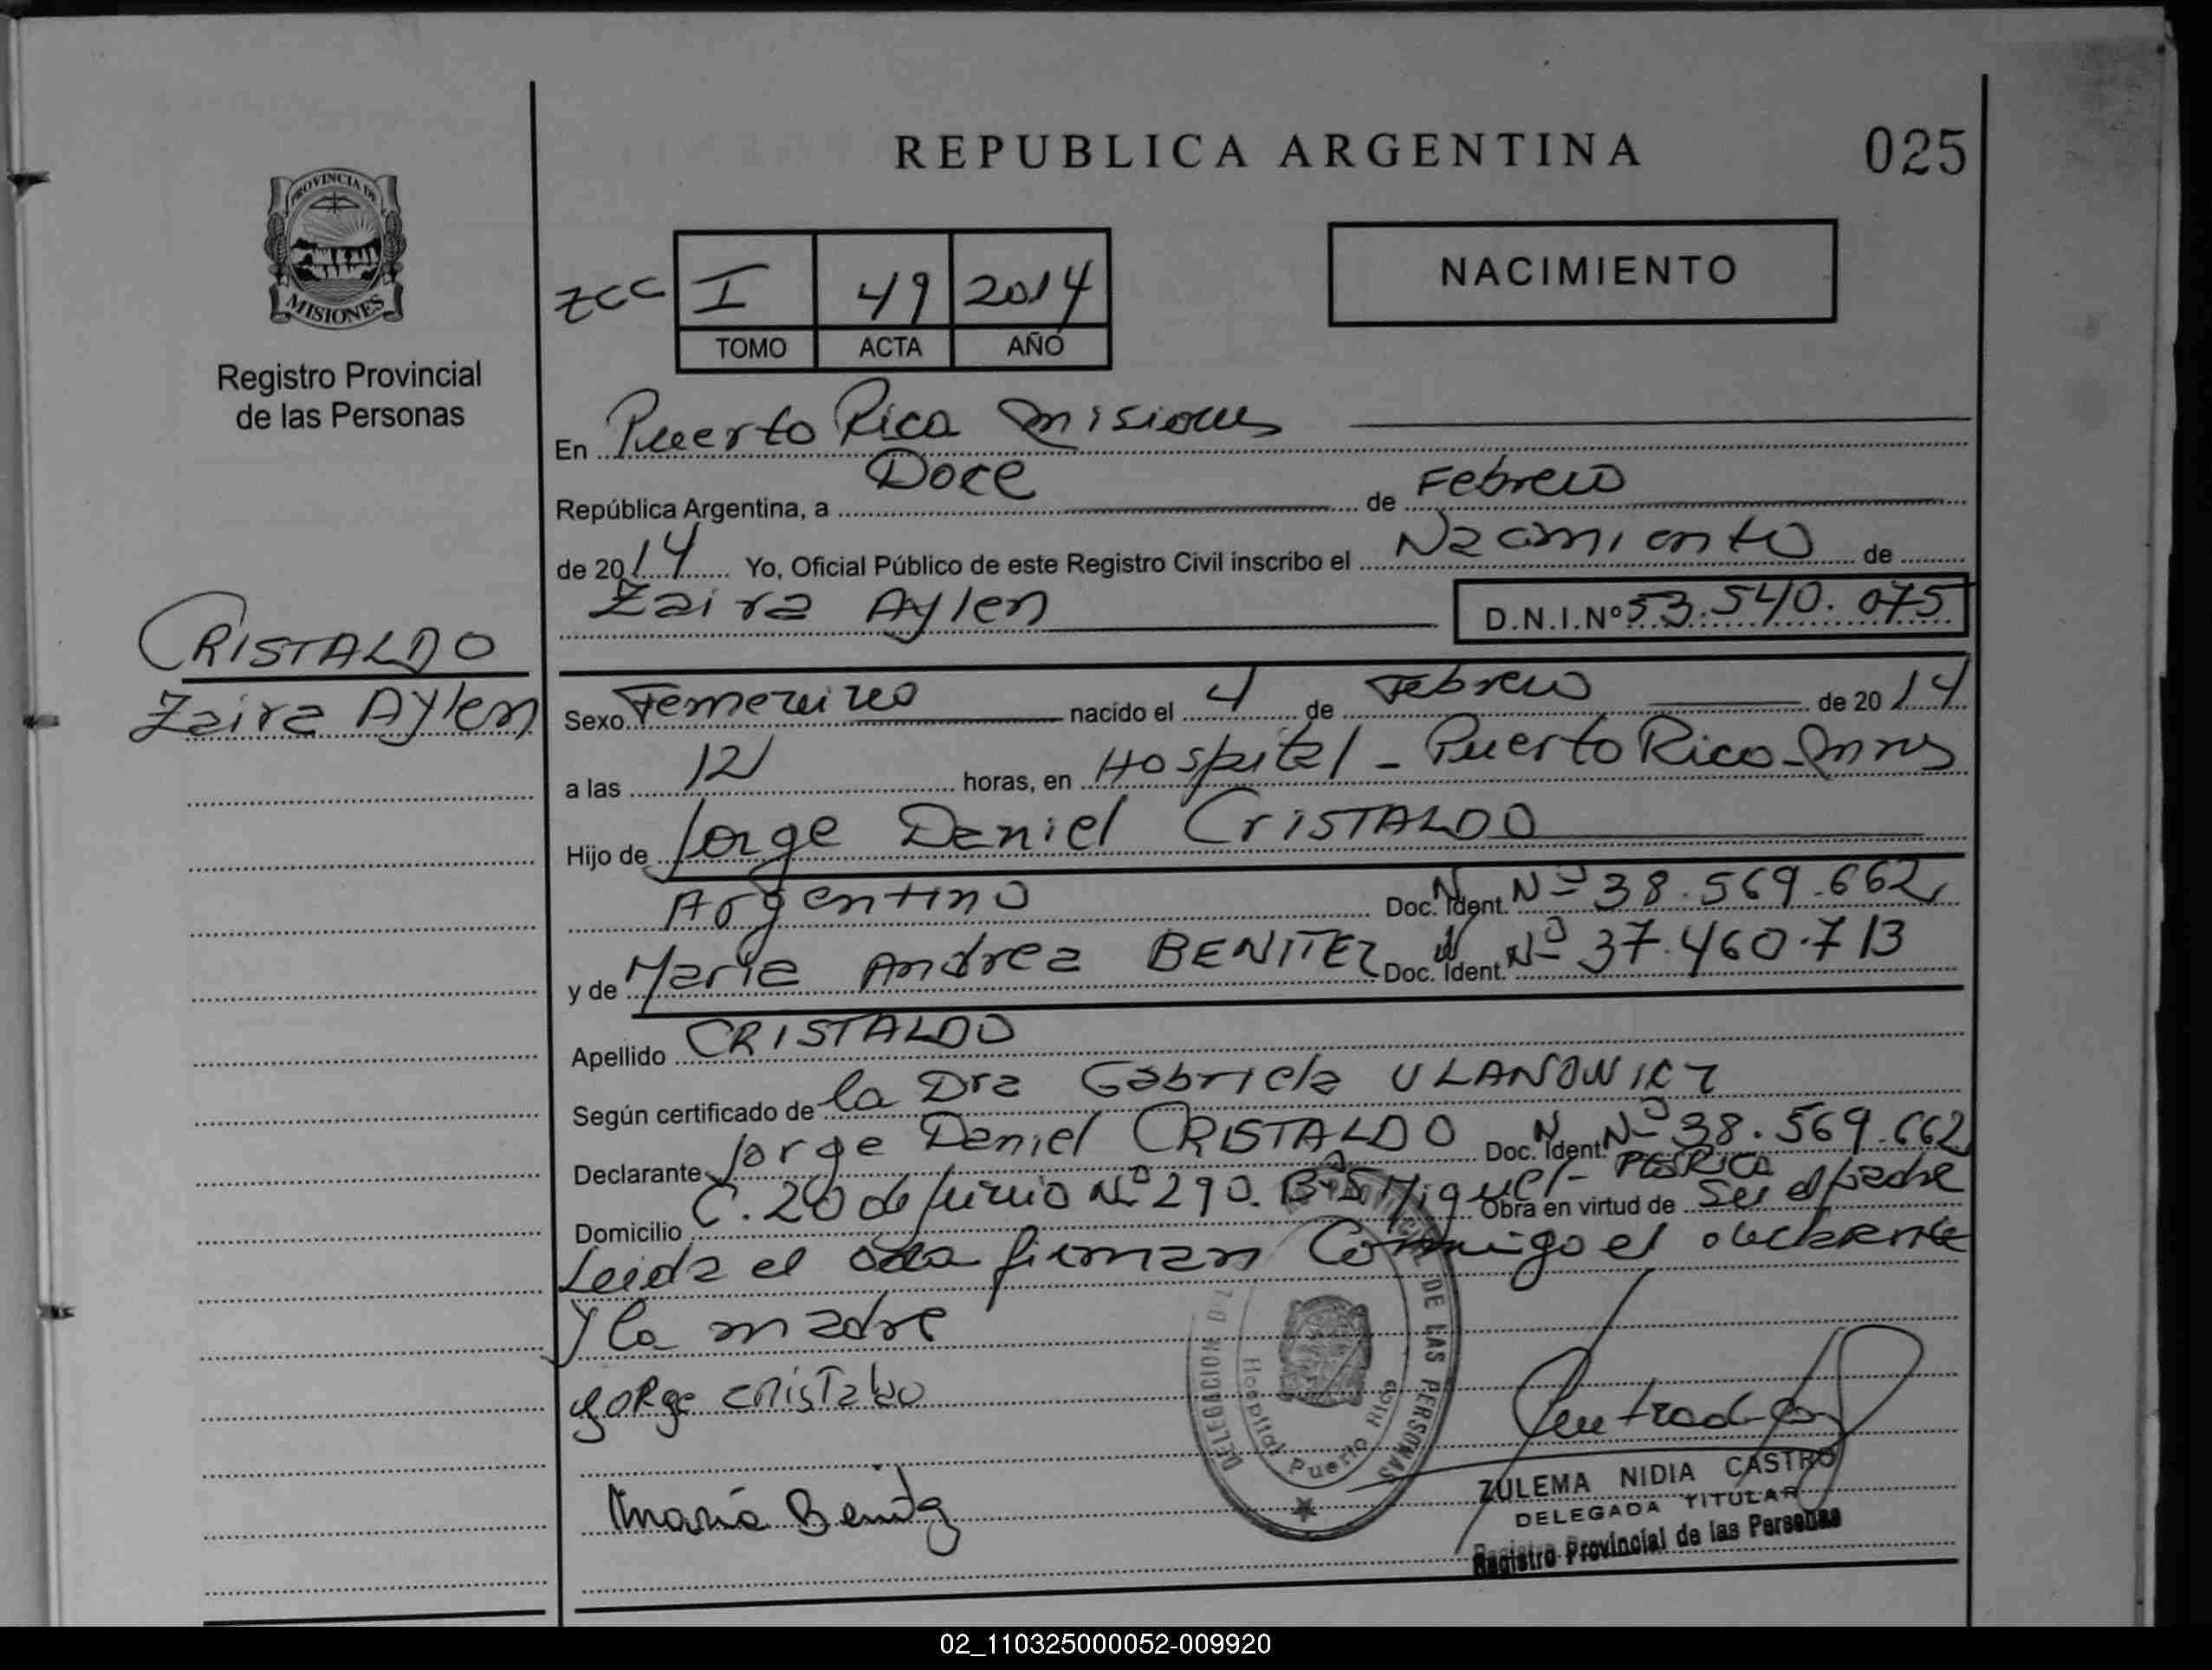 REPUBLICA ARGENTINA
025
PROVINCIA DE
MISIONES
Registro Provincial
de las Personas
NACIMIENTO
ZCC I 49 2014
TOMO ACTA AÑO
En Puerto Rico Misiones
República Argentina, a Doce de Febrero
de 2014 Yo, Oficial Público de este Registro Civil inscribo el Nacimiento de
Zaira Aylen D.N.I.Nº 53.540.075
CRISTALDO
Zaira Aylen
Sexo Femenino nacido el 4 de Febrero de 2014
a las 12 horas, en Hospital - Puerto Rico - Mnes
Hijo de Jorge Daniel CRISTALDO
Argentino Doc. N. Ident. Nº 38.569.662
y de Maria Andrea BENITEZ Doc. Ident. Nº 37.460.713
Apellido CRISTALDO
Según certificado de la Dra Gabriela ULANOWICZ
Declarante Jorge Daniel CRISTALDO Doc. N. Ident. Nº 38.569.662
Domicilio C. 20 de Junio Nº 290. Bº S Miguel - PTO RICO Obra en virtud de Ser el padre
Leida el acta firman Conmigo el declarante
y la madre
Jorge Cristaldo
María Benitez
DE LAS PERSONAS
DELEGACION
Hospital Puerto Rico
ZULEMA NIDIA CASTRO
DELEGADA TITULAR
Registro Provincial de las Personas
02_110325000052-009920